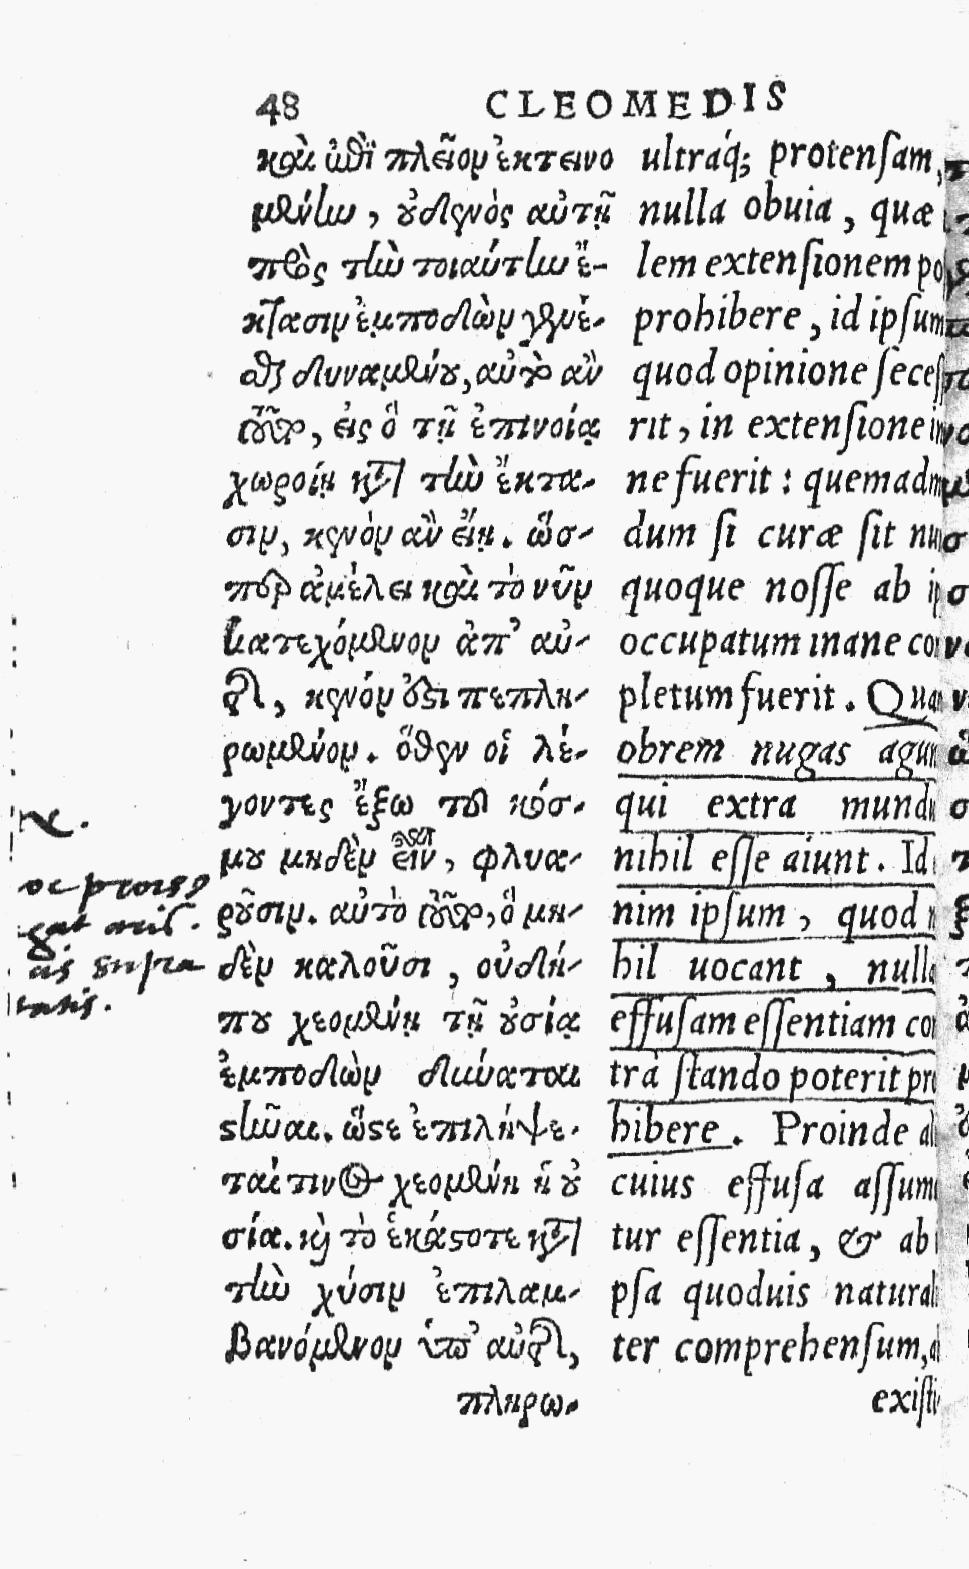 48 CLEOMEDIS
καὶ ἐπὶ πλεῖον ἐκτεινο
μένην, οὐδενὸς αὐτῇ
πρὸς τὴν τοιαύτην ἔ-
κτασιν ἐμποδὼν γενέ-
σθαι δυναμένου, αὐτὸ ἂν
τοῦτο, εἰς ὃ τῇ ἐπινοίᾳ
χωροίη κατὰ τὴν ἔκτα-
σιν, κενὸν ἂν εἴη. ὥσ-
περ ἀμέλει καὶ τὸ νῦν
κατεχόμενον ἀπ' αὐ-
τοῦ, κενόν ἐστι πεπλη-
ρωμένον. ὅθεν οἱ λέ-
γοντες ἔξω τοῦ κόσ-
μου μηδὲν εἶναι, φλυα-
ροῦσιν. αὐτὸ τοῦτο, ὃ μη-
δὲν καλοῦσι, οὐδή-
που χεομένῃ τῇ οὐσίᾳ
ἐμποδὼν δύναται
στῆναι. ὥστε ἐπιλήψε-
ταί τινος χεομένη ἡ οὐ
σία. καὶ τὸ ἑκάστοτε κατὰ
τὴν χύσιν ἐπιλαμ-
βανόμενον ὑπ' αὐτοῦ,
πληρω-
ultráq; protensam,
nulla obuia, quæ
lem extensionem po
prohibere, id ipsum
quod opinione secess
rit, in extensione in
ne fuerit: quemadm
dum si curæ sit nu
quoque nosse ab ip
occupatum inane co
pletum fuerit. Qua
obrem nugas agun
qui extra mundu
nihil esse aiunt. Id
nim ipsum, quod
hil uocant, nulla
effusam essentiam co
tra stando poterit pr
hibere. Proinde al
cuius effusa assum
tur essentia, & ab
psa quoduis natural
ter comprehensum,
existi